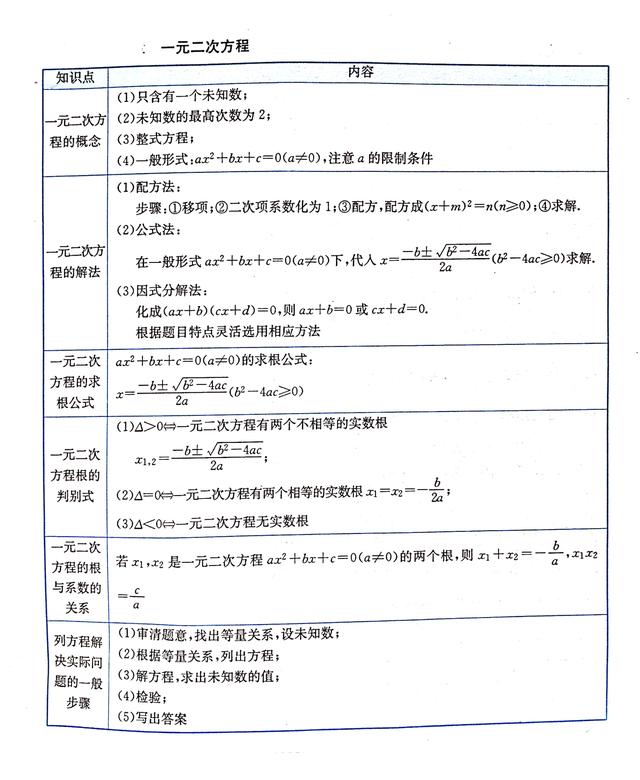 一元二次方程
知识点
内容
一元二次方
程的概念
(1)只含有一个未知数;
(2)未知数的最高次数为2;
(3)整式方程;
(4)一般形式:ax²+bx+c=0(a≠0),注意a的限制条件
一元二次方
程的解法
(1)配方法:
步骤:①移项;②二次项系数化为1;③配方,配方成(x+m)²=n(n≥0);④求解.
(2)公式法:
在一般形式ax²+bx+c=0(a≠0)下,代入x=\frac{-b±\sqrt{b²-4ac}}{2a}(b²-4ac≥0)求解.
(3)因式分解法:
化成(ax+b)(cx+d)=0,则ax+b=0或cx+d=0.
根据题目特点灵活选用相应方法
一元二次
方程的求
根公式
ax²+bx+c=0(a≠0)的求根公式:
x=\frac{-b±\sqrt{b²-4ac}}{2a}(b²-4ac≥0)
一元二次
方程根的
判别式
(1)Δ>0⇔一元二次方程有两个不相等的实数根
x₁,₂=\frac{-b±\sqrt{b²-4ac}}{2a};
(2)Δ=0⇔一元二次方程有两个相等的实数根x₁=x₂=-\frac{b}{2a};
(3)Δ<0⇔一元二次方程无实数根
一元二次
方程的根
与系数的
关系
若x₁,x₂是一元二次方程ax²+bx+c=0(a≠0)的两个根,则x₁+x₂=-\frac{b}{a},x₁x₂
=\frac{c}{a}
列方程解
决实际问
题的一般
步骤
(1)审清题意,找出等量关系,设未知数;
(2)根据等量关系,列出方程;
(3)解方程,求出未知数的值;
(4)检验;
(5)写出答案